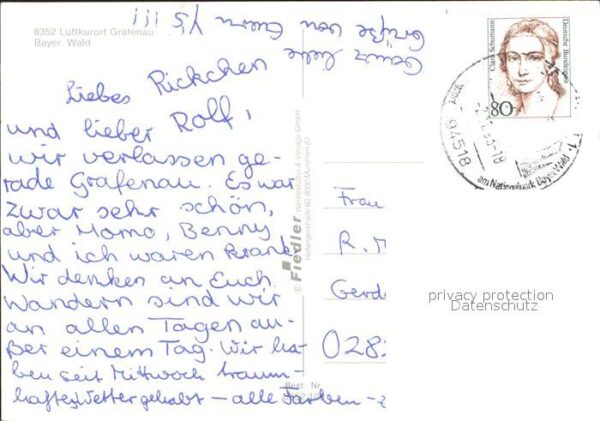 8352 Luftkurort Grafenau
Bayer. Wald
Ganz liebe
Grüße von Euern
YS !!!
Liebes Rickchen
und lieber Rolf,
wir verlassen ge-
rade Grafenau. Es war
zwar sehr schön,
aber Momo, Benny
und ich waren krank
Wir denken an Euch.
Wandern sind wir
an allen Tagen au-
ßer einem Tag. Wir ha-
ben seit Mittwoch traum-
haftes Wetter gehabt – alle Farben –
© Fiedler
Werbemittel & Verlags GmbH
8000 München 60
Best. Nr.
Clara Schumann
80
Deutsche Bundespost
94518
am Nationalpark Bayer. Wald
Frau
R. M
Gerd
028
privacy protection
Datenschutz